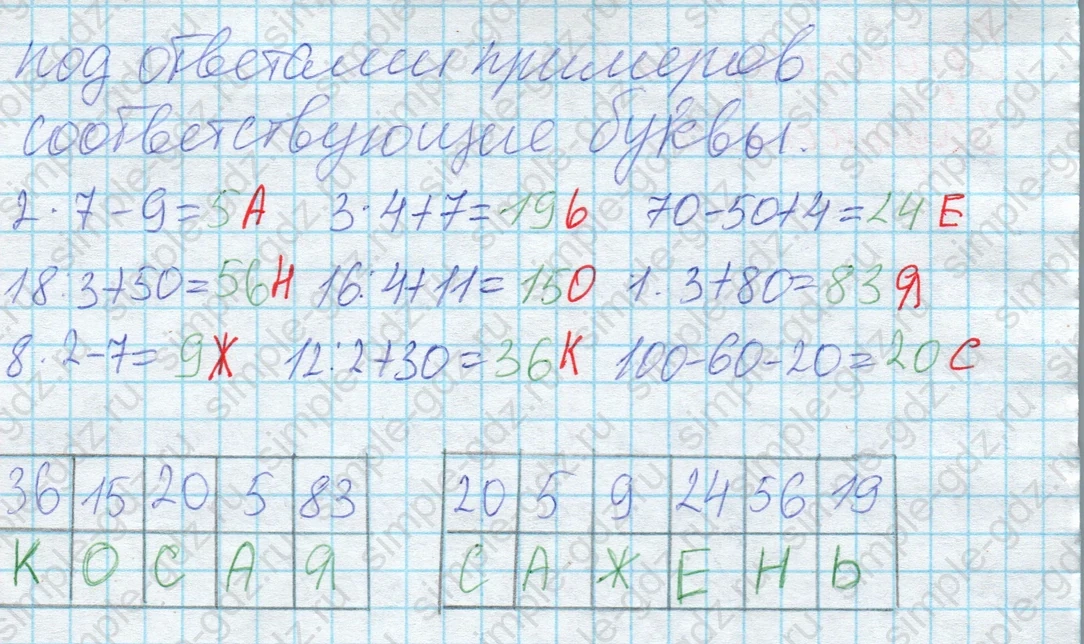 под ответами примеров
соответствующие буквы.
2·7-9=5А 3·4+7=19Ь 70-50+4=24Е
18:3+50=56Н 16:4+11=15О 1·3+80=83Я
8·2-7=9Ж 12:2+30=36К 100-60-20=20С
36 15 20 5 83 20 5 9 24 56 19
К О С А Я С А Ж Е Н Ь
simple-gdz.ru